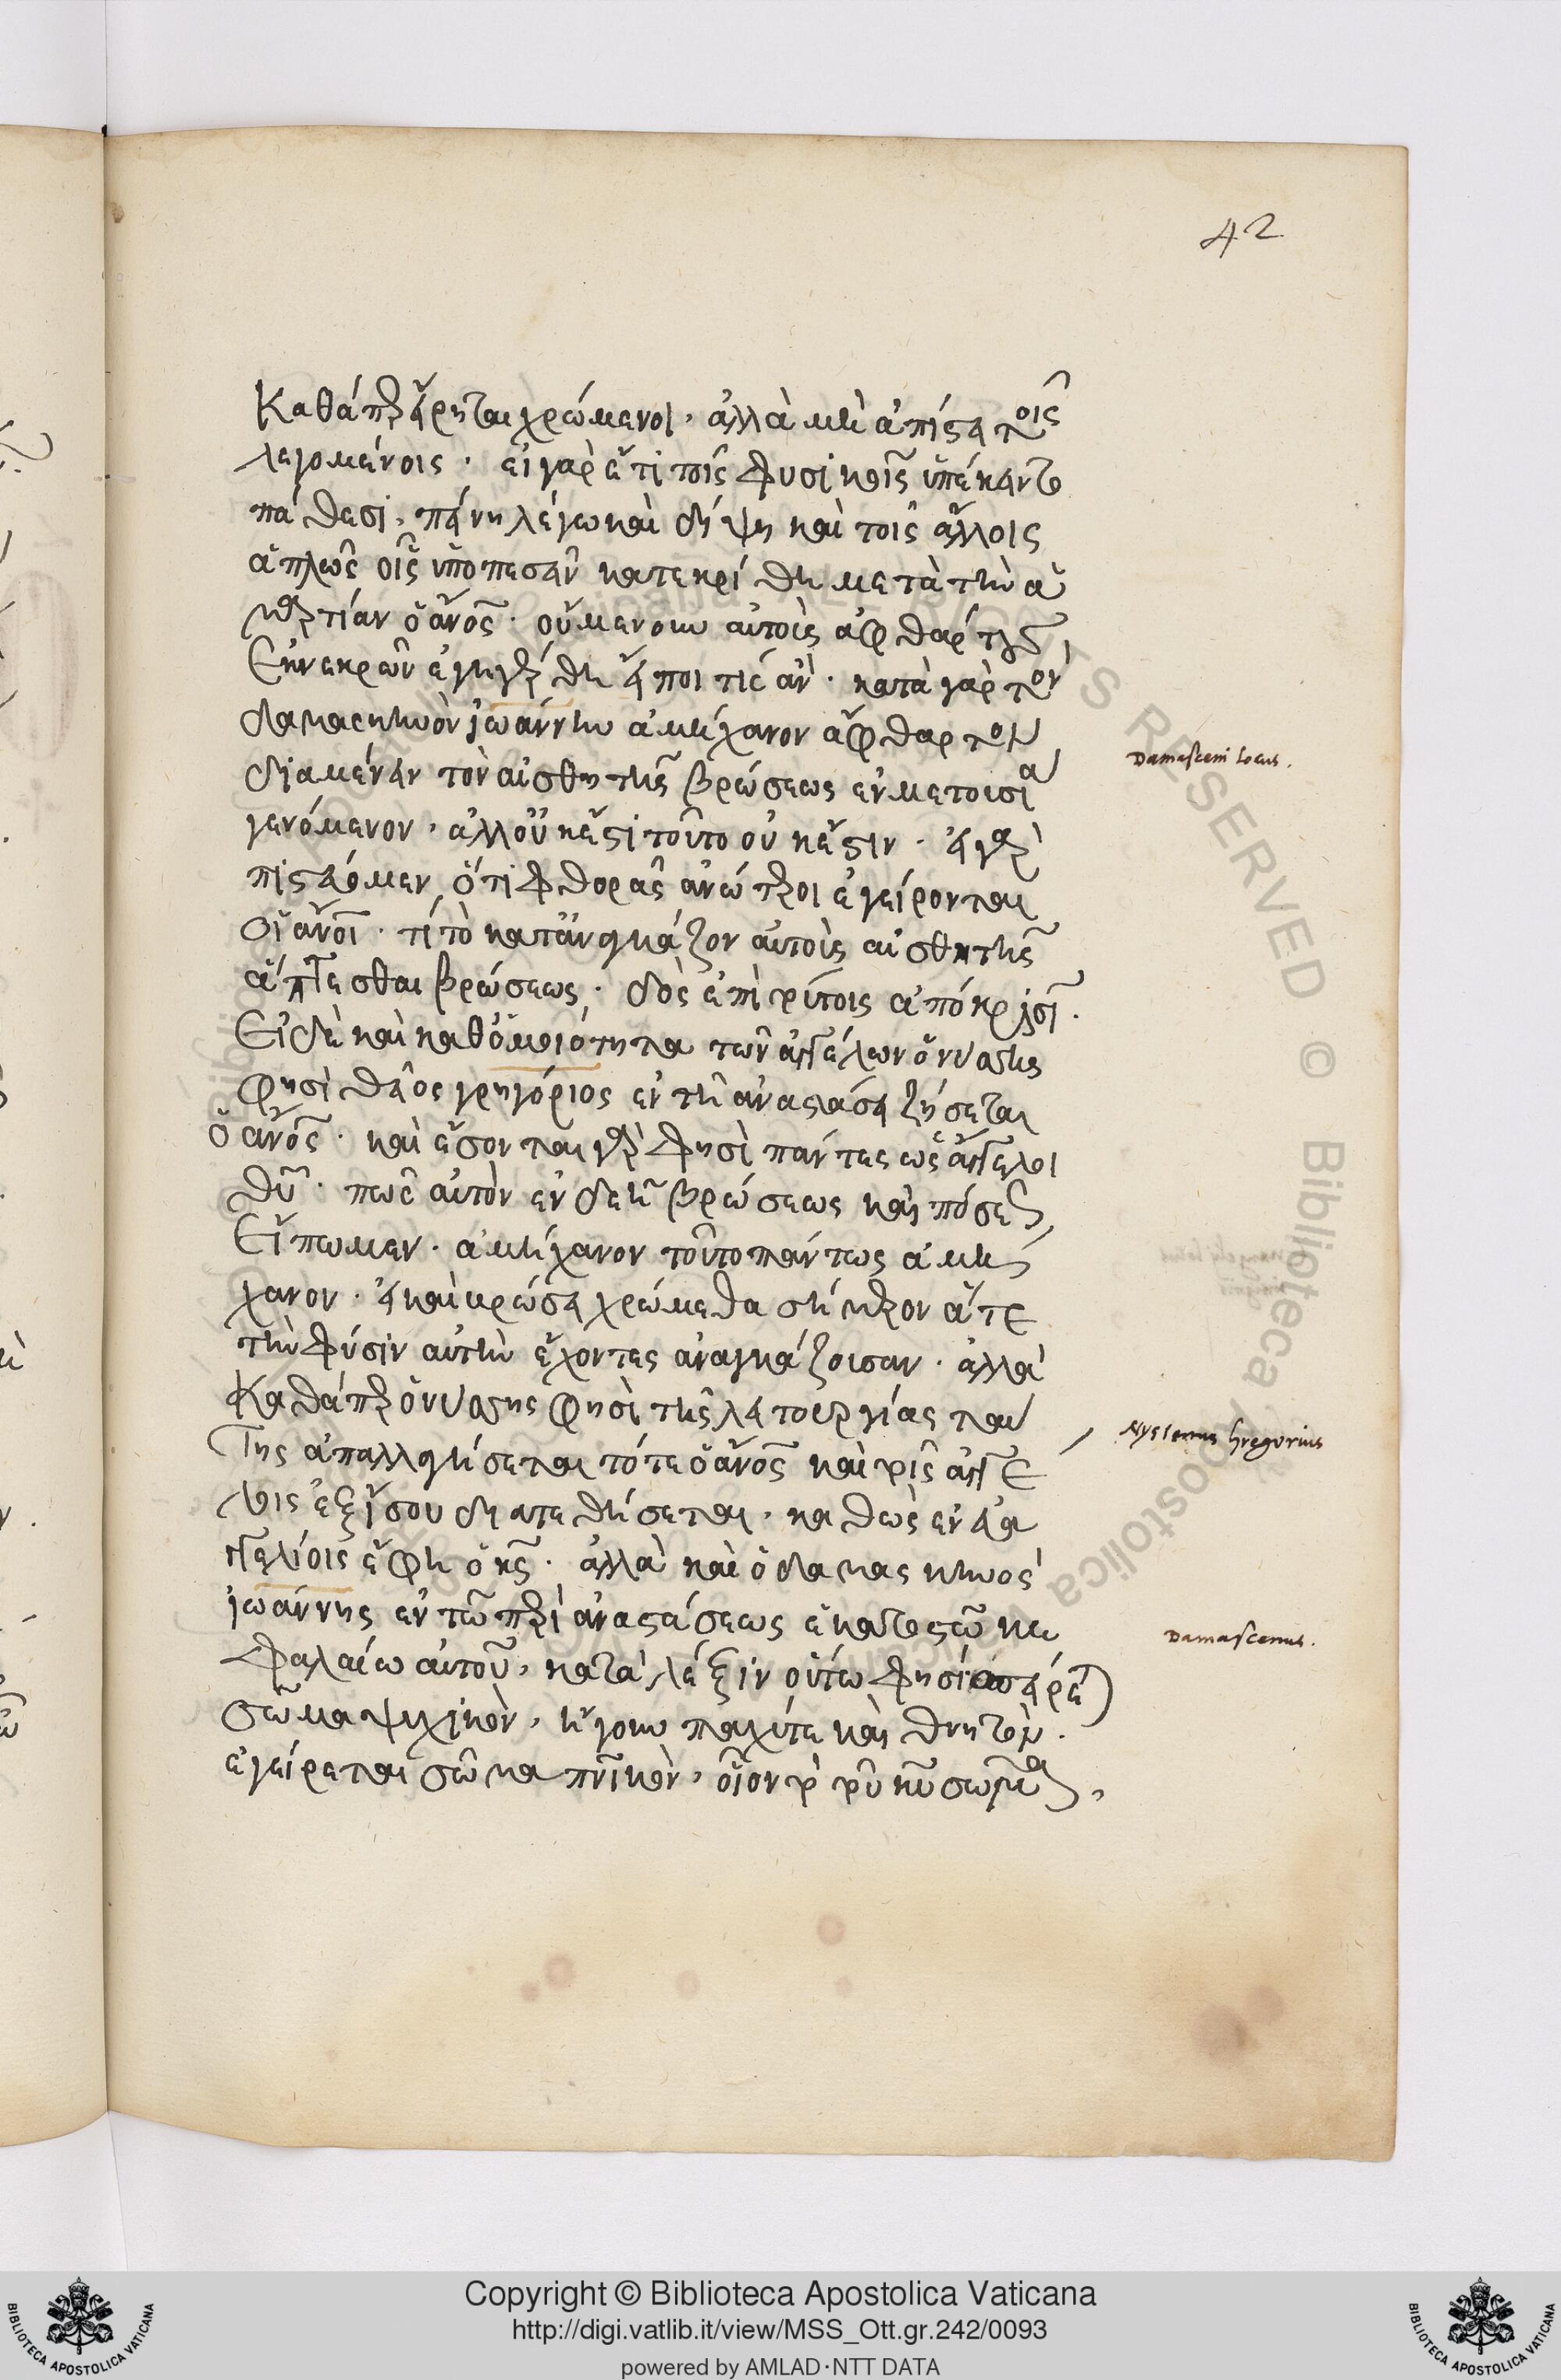 42
Καθάπερ εἴρηται χρώμενοι, ἀλλὰ μὴ ἀπίστει τοῖς
λεγομένοις. εἰ γὰρ ἔτι τοῖς φυσικοῖς ὑπέκειντο
πάθεσι, πείνη λέγω καὶ δίψη καὶ τοῖς ἄλλοις
ἁπλῶς οἷς ὑποπεσεῖν κατεκρίθη μετὰ τὴν ἁ
μαρτίαν ὁ ἄνος. οὔμενουν αὐτοῖς ἀφθάρτως
ἐκ νεκρῶν ἐγηγέρθη εἴποι τις ἄν. κατὰ γὰρ τὸν
δαμασκηνὸν ἰωάννην ἀμήχανον ἄφθαρτον
διαμένειν τὸν αἰσθητῆς βρώσεως ἐν μετουσίᾳ
γενόμενον, ἀλλ οὐκ ἔστι τοῦτο οὐκ ἔστιν. εἰ γὰρ
πιστεύομεν ὅτι φθορᾶς ἀνώτεροι ἐγείρονται
οἱ ἄνοι. τί τὸ καταναγκάζον αὐτοὺς αἰσθητῆς
ἅπτεσθαι βρώσεως. δὸς ἐπὶ τούτοις ἀπόκρισιν.
Εἰ δὲ καὶ καθ ὁμοιότητα τῶν ἀγγέλων ὁ νύσσης
φησὶ θεῖος γρηγόριος ἐν τῇ ἀναστάσει ζήσεται
ὁ ἄνος. καὶ ἔσονται γὰρ φησὶ πάντες ὡς ἄγγελοι
θυ. πῶς αὐτὸν ἐνδεῆ βρώσεως καὶ πόσεως
Εἴπωμεν. ἀμήχανον τοῦτο πάντως ἀμή
χανον. εἰ καὶ βρώσει χρώμεθα σήμερον ἅτε
τὴν φύσιν αὐτὴν ἔχοντες ἀναγκάζουσαν. ἀλλὰ
καθάπερ ὁ νύσσης φησὶ τῆς λειτουργίας ταύ
της ἀπαλλαγήσεται τότε ὁ ἄνος καὶ τοῖς ἀγγέ
λοις ἐξίσου διατεθήσεται, καθὼς ἐν εὐα
γγελίοις ἔφη ὁ κς. ἀλλὰ καὶ ὁ δαμασκηνὸς
ἰωάννης ἐν τῷ περὶ ἀναστάσεως ἑκατοστῷ κε
φαλαίῳ αὐτοῦ, κατὰ λέξιν οὕτω φησί σπείρεται
σῶμα ψυχικὸν, ἤγουν παχύ τε καὶ θνητόν.
ἐγείρεται σῶμα πνικὸν, οἷον τὸ τοῦ κυ σῶμα,
Damasceni locus.
Nyssenus Gregorius
Damascenus.
Copyright © Biblioteca Apostolica Vaticana
http://digi.vatlib.it/view/MSS_Ott.gr.242/0093
powered by AMLAD·NTT DATA